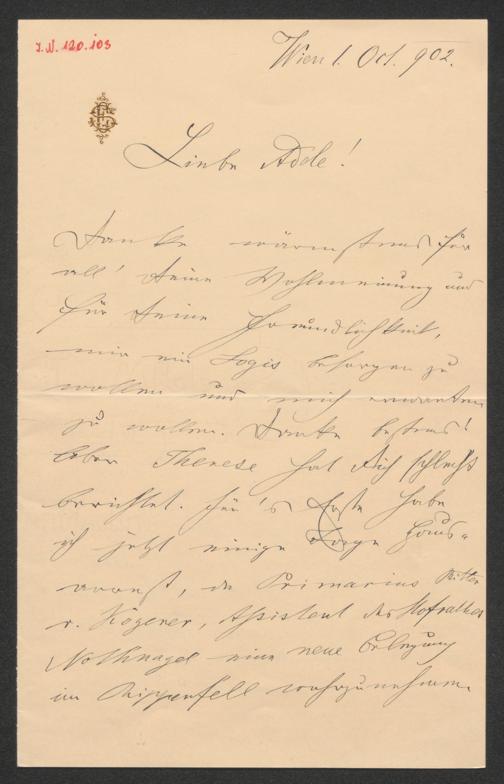 I.N. 120.103
Wien 1. Oct. 902.
Liebe Adele!
Danke wärmstens für
all' Deine Wohlmeinung und
für Deine Freundlichkeit,
mir ein Logis besorgen zu
wollen und mich erwarten
zu wollen. Danke bestens!
Aber Therese hat Dich schlecht
berichtet. Für's Erste habe
ich jetzt einige Tage Haus-
arrest, da Primarius Ritter
v. Kogerer, Assistent des Hofrathes
Nothnagel eine neue
im Rippenfell wahrzunehmen